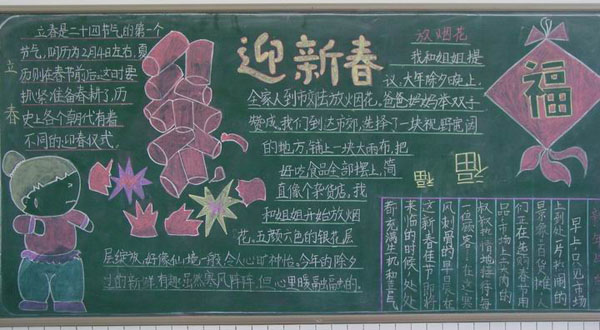 迎新春
立春
立春是二十四节气的第一个
节气,阴历为2月4日左右,夏
历则在春节前后。这时要
抓紧准备春耕了,历
史上各个朝代有着
不同的迎春仪式。
放烟花
我和姐姐提
议,大年除夕晚上,
全家人到市郊去放烟花,爸爸妈妈举双手
赞成。我们到达市郊,选择了一块视野宽阔
的地方,铺上一块大雨布,把
好吃食品全部摆上,简
直像个杂货店,我
和姐姐开始放烟
花,五颜六色的银花层
层绽放,好像仙境一般令人心旷神怡。今年的除夕
过的新鲜有趣虽然寒风阵阵,但心里暖融融的。
福
福
福
早上,只见市场
上到处一片热闹的
景象:卖百货摊人
们正在选购春节用
品,市场上卖肉的
叔叔热情地接待每
一位顾客。在这寒
风刺骨的早晨,在
这新春佳节即将
来临的时候,处处
都充满生机和喜气。